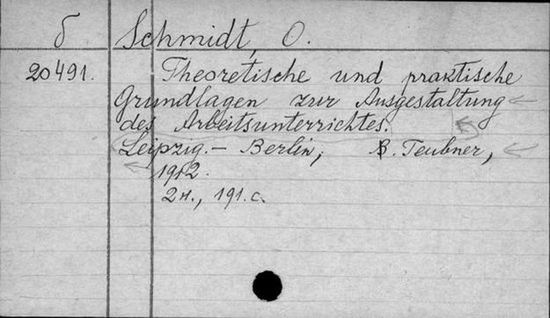 б Schmidt, O.
20491. Theoretische und praktische
Grundlagen zur Ausgestaltung
des Arbeitsunterrichtes.
Leipzig. - Berlin, B. Teubner,
1912.
2н., 191.с.